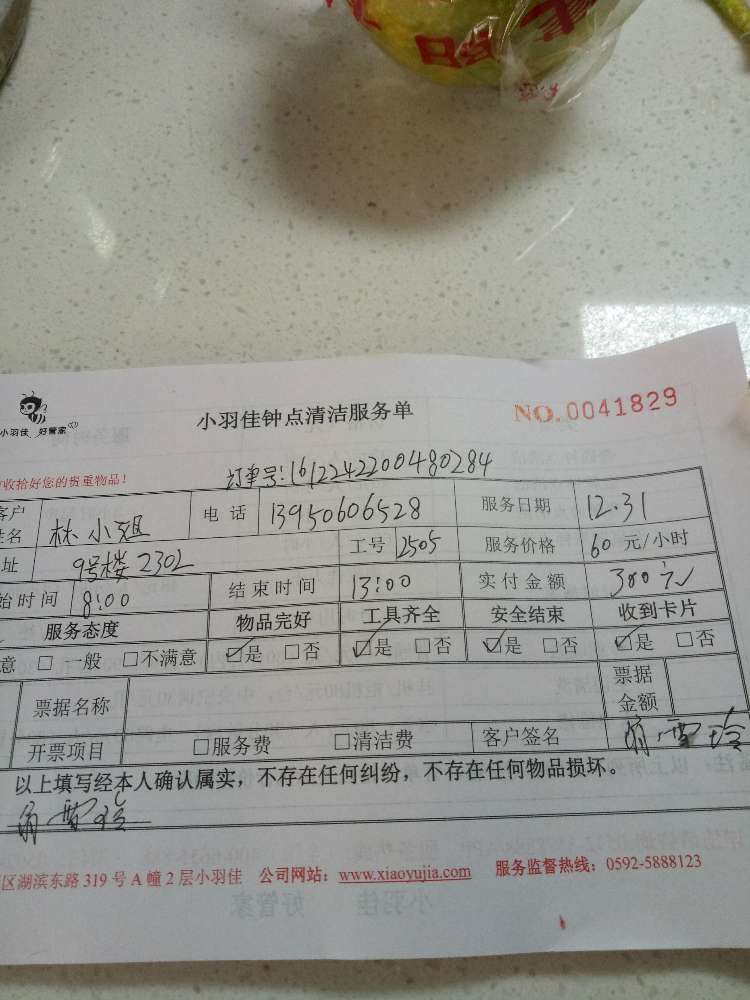 小羽佳 好管家
小羽佳钟点清洁服务单
NO.0041829
收拾好您的贵重物品！
订单号:1612242200480284
客户
姓名
林小姐
电话
13950606528
服务日期
12.31
址
9号楼 2302
工号
2505
服务价格
60 元/小时
始时间
8:00
结束时间
13:00
实付金额
300元
服务态度
物品完好
工具齐全
安全结束
收到卡片
意 □ 一般 □不满意
☑是 □否
☑是 □否
☑是 □否
☑是 □否
票据名称
票据
金额
开票项目
□服务费
□清洁费
客户签名
雪玲
以上填写经本人确认属实，不存在任何纠纷，不存在任何物品损坏。
雪玲
区湖滨东路 319 号 A 幢 2 层小羽佳 公司网站：www.xiaoyujia.com 服务监督热线：0592-5888123